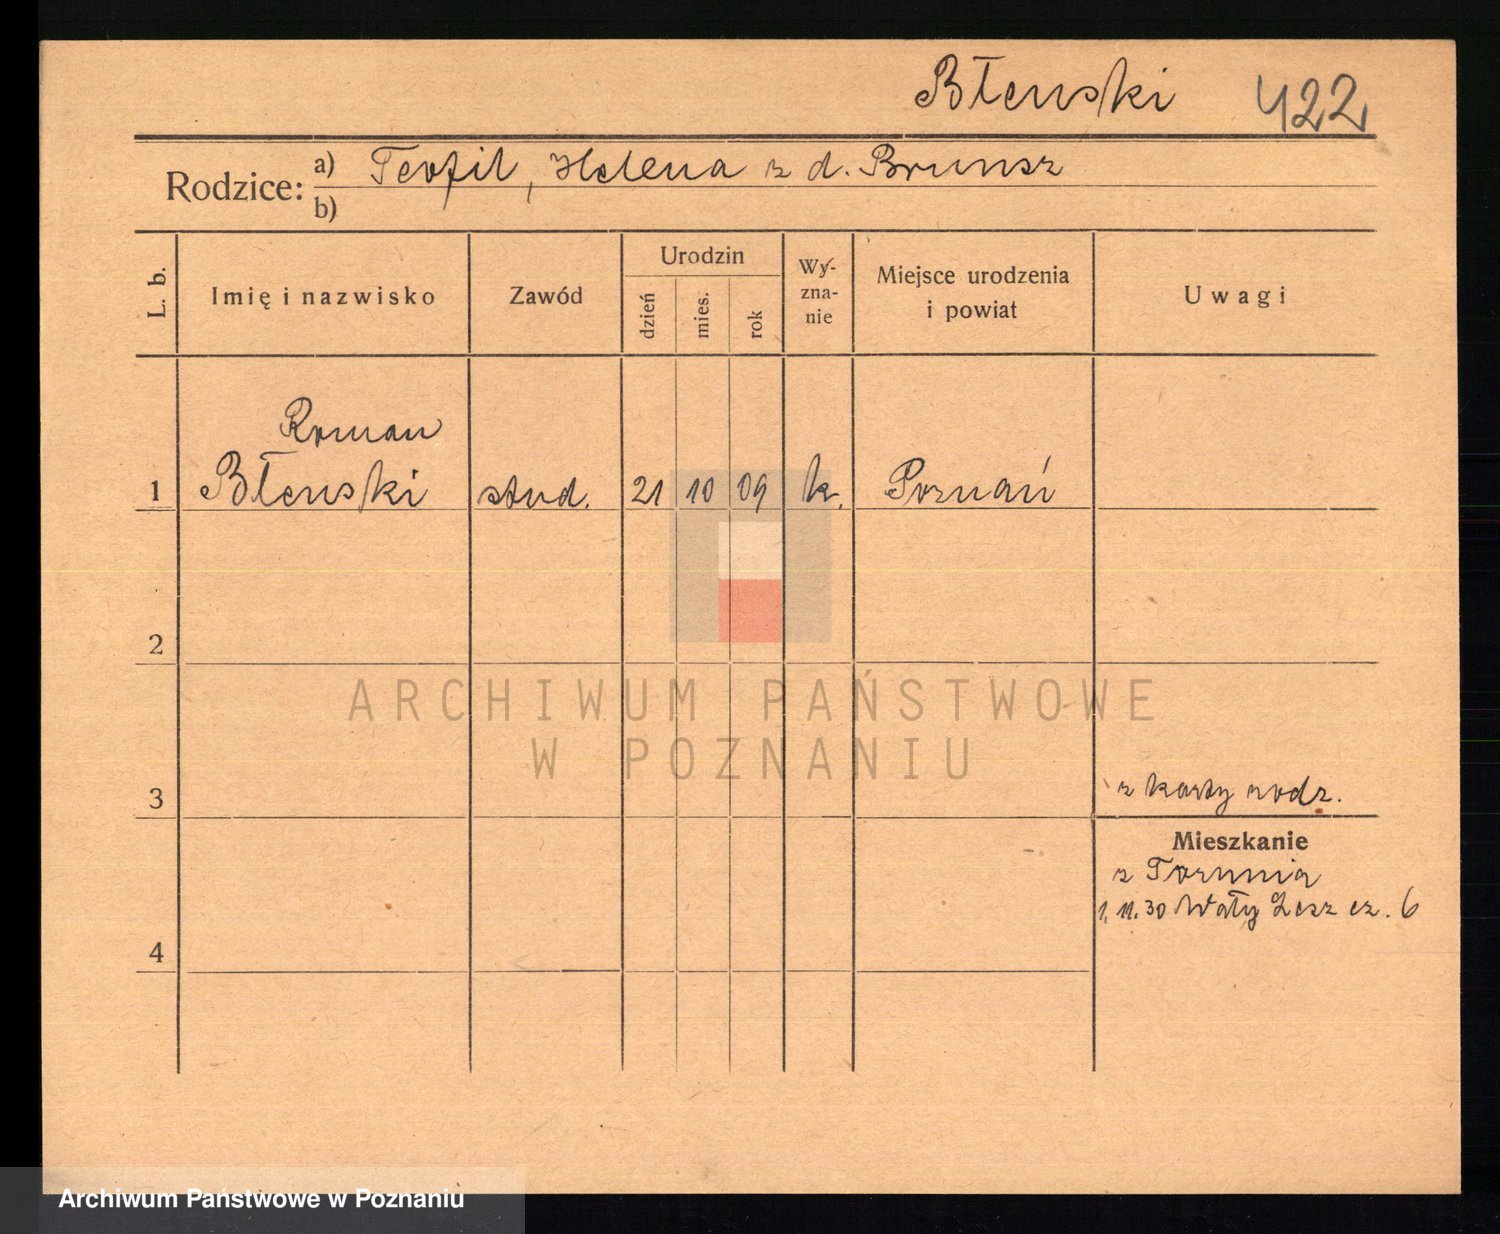 Błenski 422
Rodzice: a) Teofil, Helena z d. Brunsz
b)
L. b. Imię i nazwisko Zawód Urodzin dzień mies. rok Wyznanie Miejsce urodzenia i powiat Uwagi
Roman
1 Błenski stud. 21 10 09 k. Poznań
2
ARCHIWUM PAŃSTWOWE
W POZNANIU
3 z karty rodz.
Mieszkanie
z Torunia
1. 11. 30 Wały Leszcz. 6
4
Archiwum Państwowe w Poznaniu